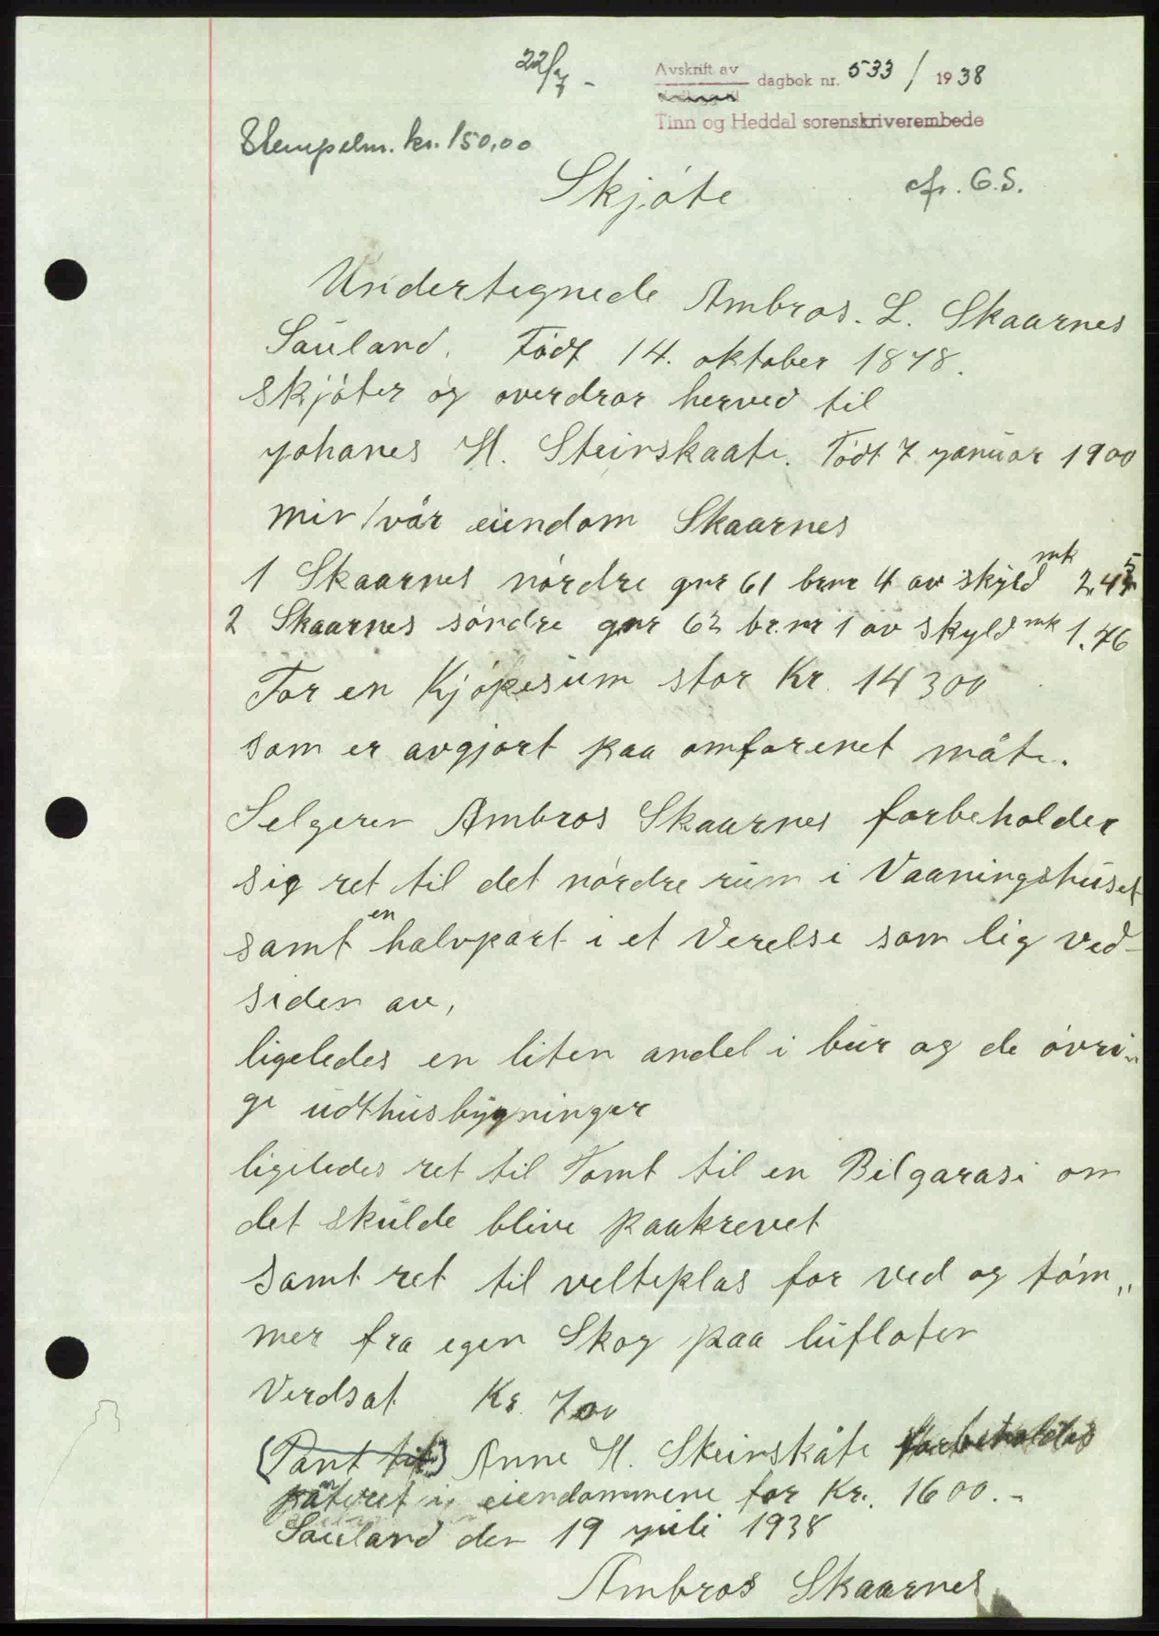 22/7 -
Avskrift av dagbok nr. 533 / 1938
Tinn og Heddal sorenskriverembede
Stempelm. kr. 150,00
Skjøte
cfr. G.S.
Undertegnede Ambros. L. Skaarnes
Sauland. Født 14. oktober 1878.
skjøter og overdrar herved til
Johanes H. Steinskaate. Født 7 januar 1900
min/vår eiendom Skaarnes
1 Skaarnes nørdre gnr 61 brnr 4 av skyld mk 2.45
2 Skaarnes søndre gnr 62 br.nr 1 av skyld mk 1.76
For en Kjøpesum stor Kr. 14300
som er avgjort paa omforenet måte.
Selgeren Ambros Skaarnes forbeholder
sig ret til det nørdre rum i Vaaningshuset
samt en halvpart i et Verelse som lig ved-
siden av,
ligeledes en liten andel i bur og de øvri-
ge udthusbygninger
ligeledes ret til Tomt til en Bilgarasi om
det skulde blive paakrevet
samt ret til velteplas for ved og tøm„
mer fra egen Skog paa lufloten
Verdsat Kr. 700
(Pant til) Anne H. Steinskåte forbeholdes
panteret i eiendommene for Kr. 1600.-
Sauland den 19 juli 1938
Ambros Skaarnes